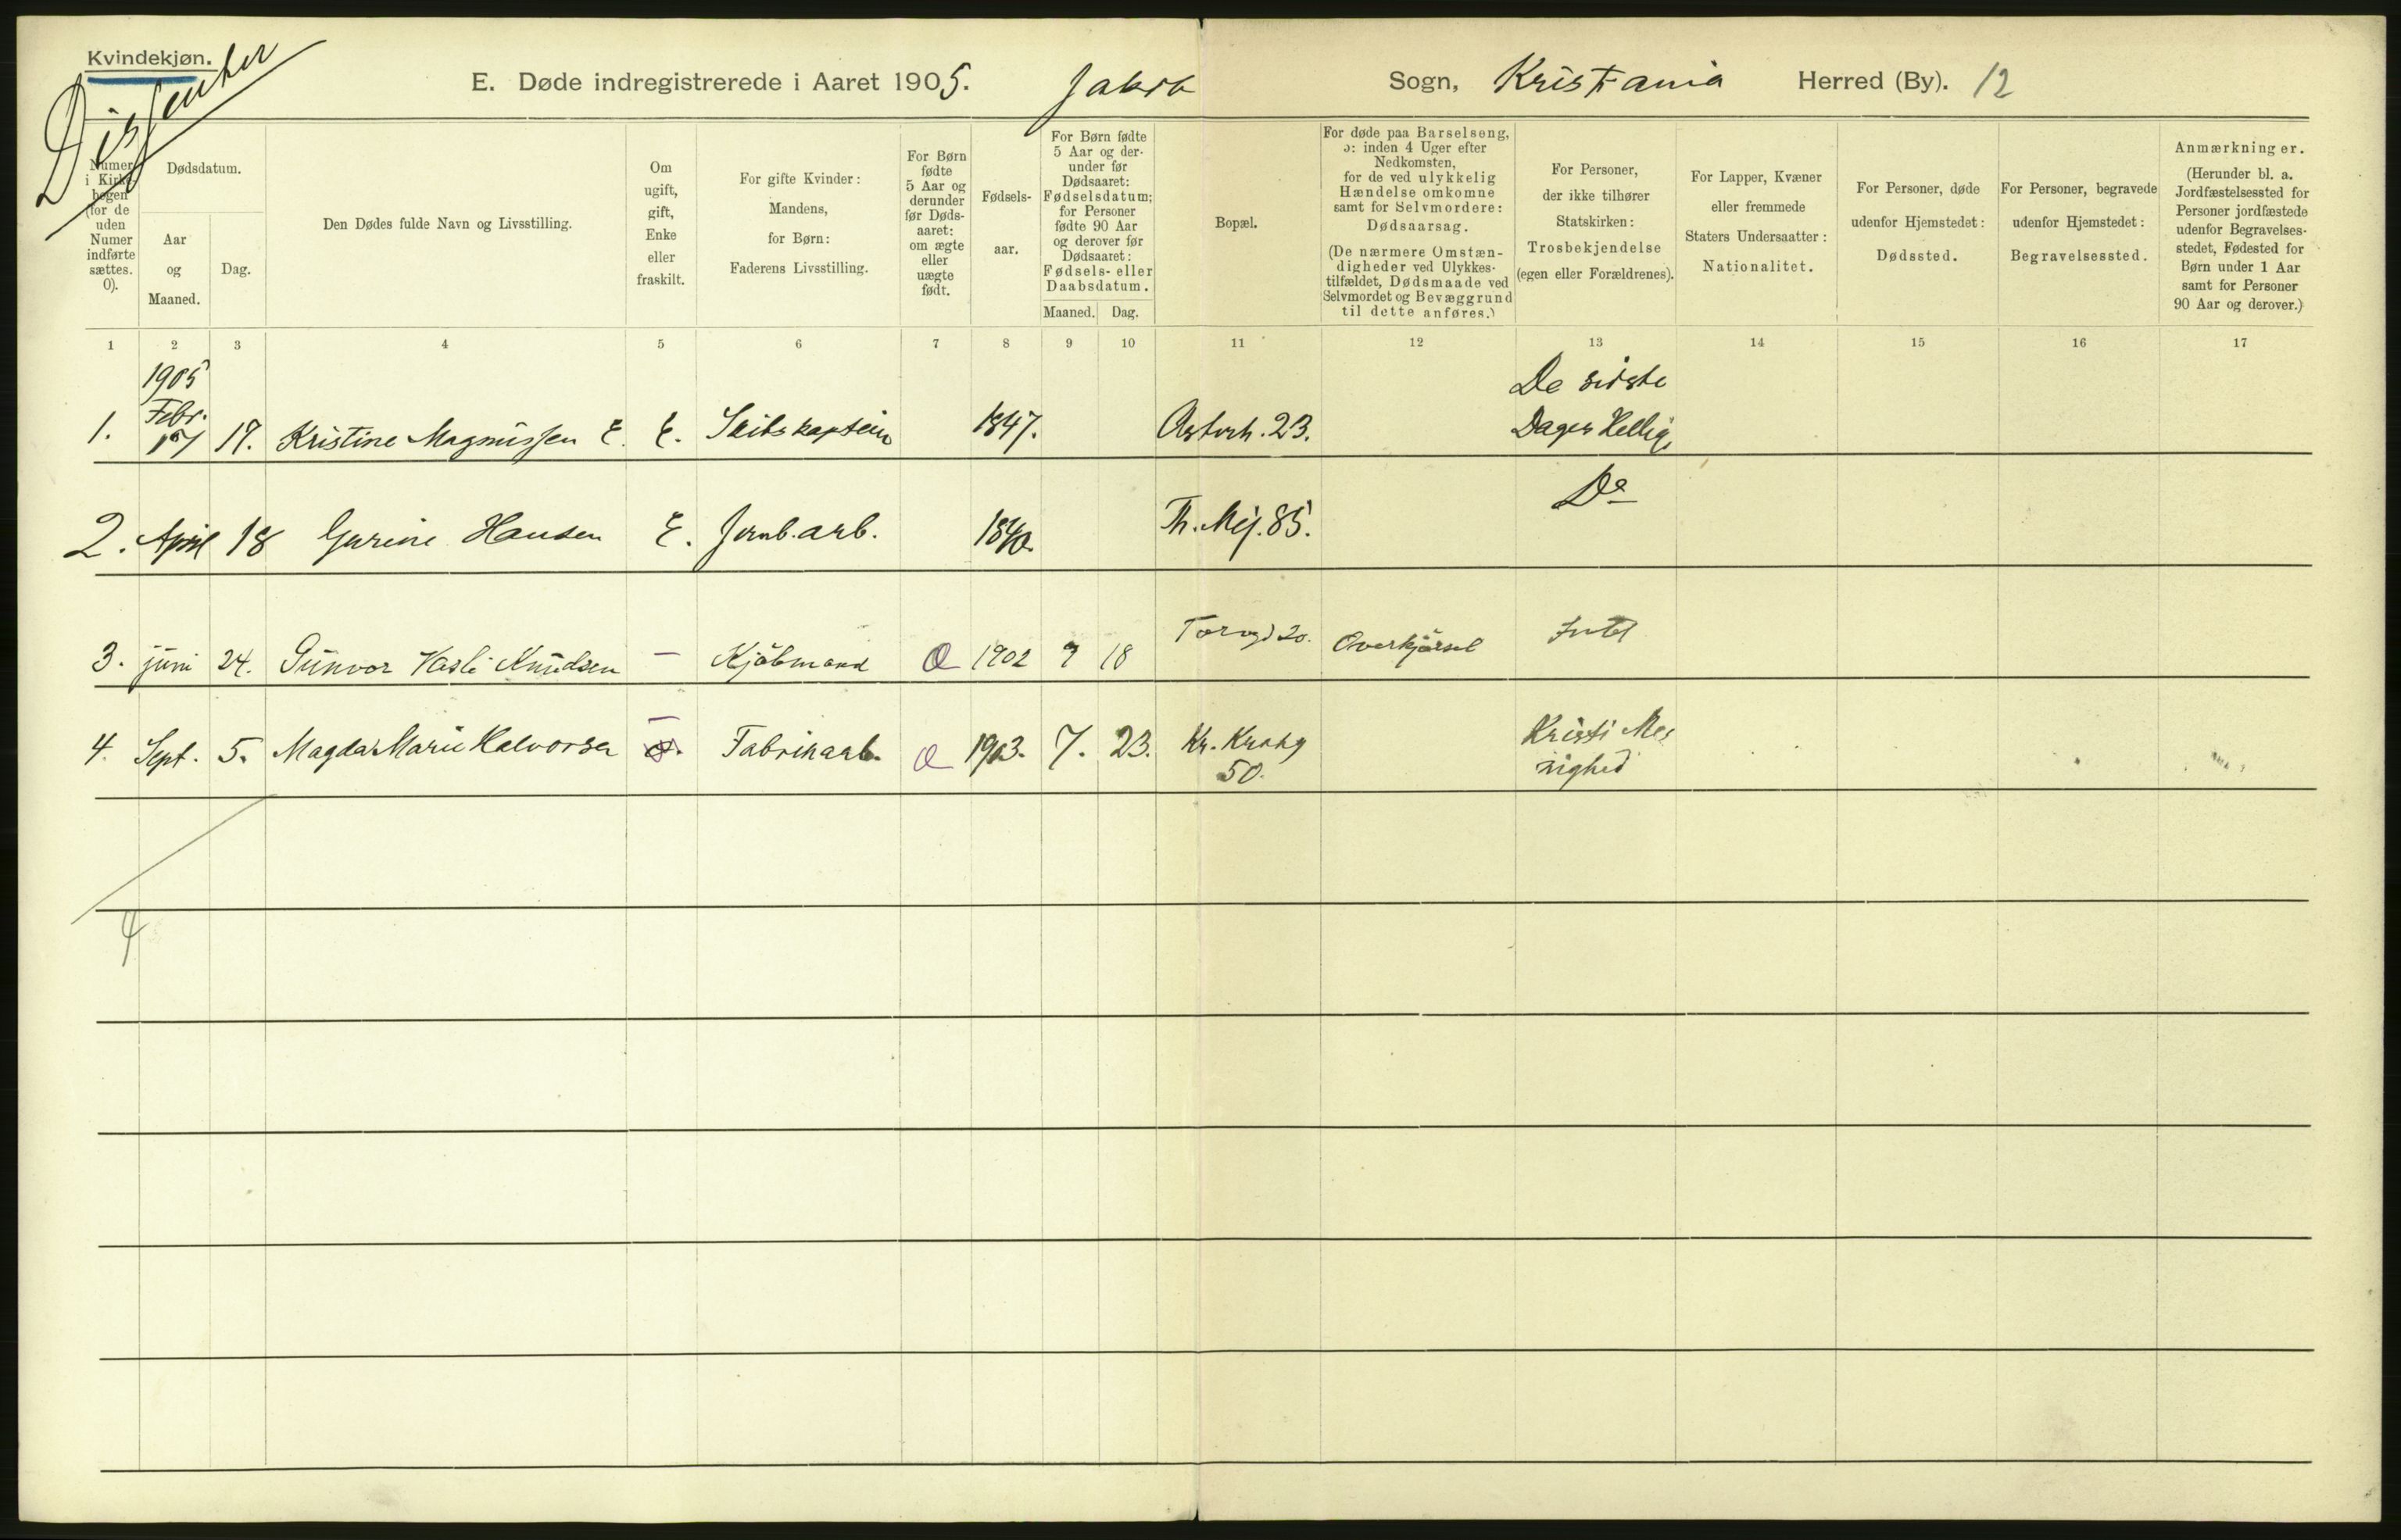 Kvindekjøn.
Dissenter
E. Døde indregistrerede i Aaret 1905. Jakob Sogn, Kristiania Herred (By). 12
Numer i Kirkebogen (for de uden Numer indførte sættes. 0).
Dødsdatum.
Aar og Maaned.
Dag.
Den Dødes fulde Navn og Livsstilling.
Om ugift, gift, Enke eller fraskilt.
For gifte Kvinder: Mandens, for Børn: Faderens Livsstilling.
For Børn fødte 5 Aar og derunder før Dødsaaret: om ægte eller uægte født.
Fødselsaar.
For Børn fødte 5 Aar og derunder før Dødsaaret: Fødselsdatum; for Personer fødte 90 Aar og derover før Dødsaaret: Fødsels- eller Daabsdatum.
Maaned. Dag.
Bopæl.
For døde paa Barselseng, ɔ: inden 4 Uger efter Nedkomsten, for de ved ulykkelig Hændelse omkomne samt for Selvmordere: Dødsaarsag.
(De nærmere Omstændigheder ved Ulykkestilfældet, Dødsmaade ved Selvmordet og Bevæggrund til dette anføres.)
For Personer, der ikke tilhører Statskirken: Trosbekjendelse (egen eller Forældrenes).
For Lapper, Kvæner eller fremmede Staters Undersaatter: Nationalitet.
For Personer, døde udenfor Hjemstedet: Dødssted.
For Personer, begravede udenfor Hjemstedet: Begravelsessted.
Anmærkninger.
(Herunder bl. a. Jordfæstelsessted for Personer jordfæstede udenfor Begravelsesstedet, Fødested for Børn under 1 Aar samt for Personer 90 Aar og derover.)
1 2 3 4 5 6 7 8 9 10 11 12 13 14 15 16 17
1905
1. Febr. 17. Kristine Magnussen E. E. Skibskaptein 1847. 23. De sidste Dages Hellige
2. April 18 Gurine Hansen E. Jernb.arb. 1840. Th. Mej. 85. Do
3. juni 24. Gunvor Hasli Knudsen — Kjøbmand 1902 9 18 Torvgd 20. Overkjørsel Intet
4. Sept. 5. Magda Marie Halvorsen — Fabrikarb. 1903. 7. 23. Kr. Krohg 50. Kristi Menighed
4